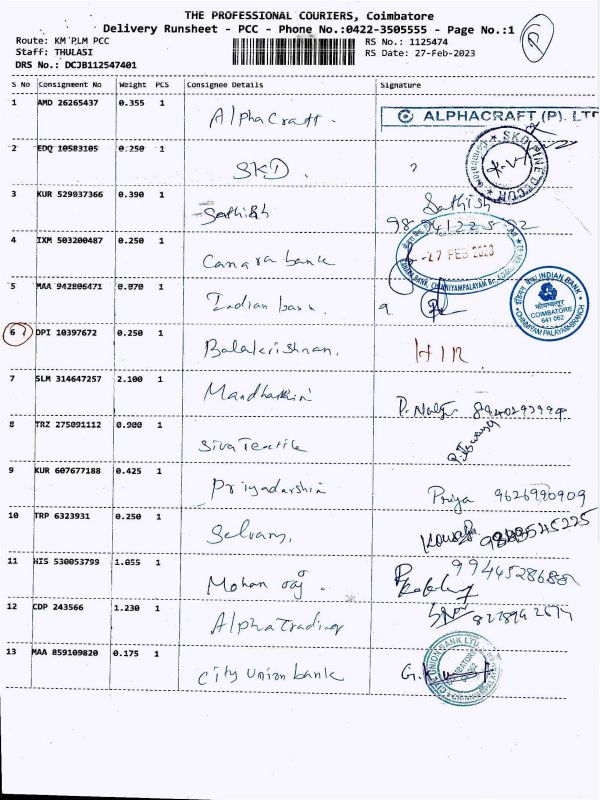 THE PROFESSIONAL COURIERS, Coimbatore
Delivery Runsheet - PCC - Phone No.:0422-3505555 - Page No.:1
P
Route: KM PLM PCC
RS No.: 1125474
Staff: THULASI
RS Date: 27-Feb-2023
DRS No.: DCJB112547401
S No Consignment No Weight PCS Consignee Details Signature
1 AMD 26265437 0.355 1 Alpha Craft. ALPHACRAFT (P). LTD
2 EDQ 10583105 0.250 1 SKD.
SKD PINE DECOR
3 KUR 529037366 0.390 1 Sathish Sathish
4 IXM 503200487 0.250 1 Canara bank
27 FEB 2023
5 MAA 942806471 0.070 1 Indian bank.
INDIAN BANK
COIMBATORE
641 062
CHINNIYAM PALAYAM BRANCH
6 DPI 10397672 0.250 1 Balakrishnan.
7 SLM 314647257 2.100 1
8 TRZ 275091112 0.900 1 Siva Textile
9 KUR 607677188 0.425 1 Priyadarshin Priya 9626990909
10 TRP 6323931 0.250 1 Selvam,
11 HIS 530053799 1.055 1 Mohan raj.
12 CDP 243566 1.230 1 Alpha Trading
13 MAA 859109820 0.175 1 City Union bank
CITY UNION BANK LTD